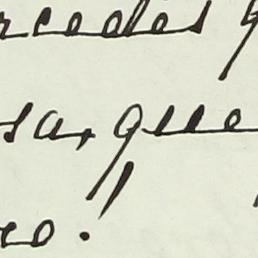 rcedes q
sa, que
eo!